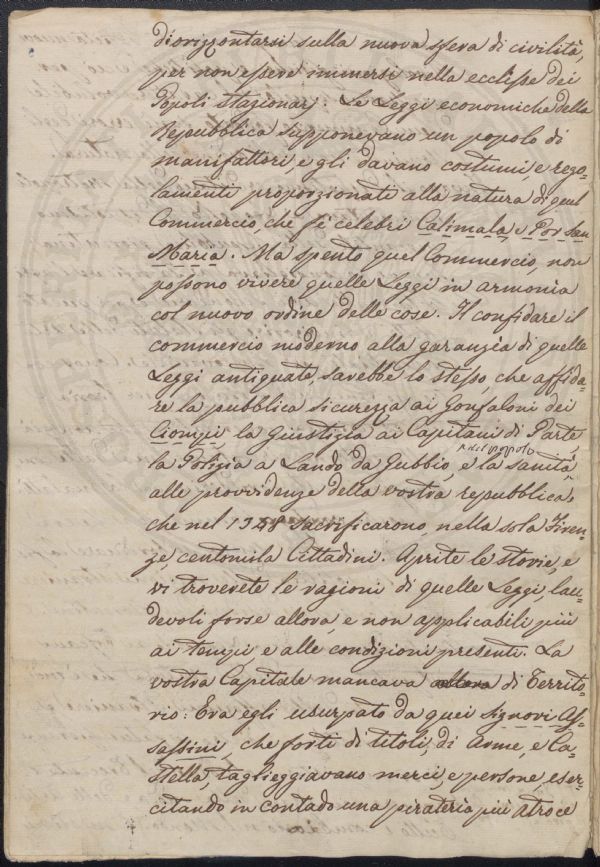 diorizzontarsi sulla nuova sfera di civilità,
per non essere immersi nella ecclisse dei
Popoli stazionarj. Le Leggi economiche della
Repubblica supponevano un popolo di
manifattori, e gli davano costumi, e rego=
lamenti proporzionati alla natura di quel
Commercio, che fè celebri Calimala, e Por San
Maria. Ma spento quel Commercio, non
possono vivere quelle Leggi in armonia
col nuovo ordine delle cose. Il confidare il
commercio moderno alla garanzia di quelle
Leggi antiquate, sarebbe lo stesso, che affida=
re la pubblica sicurezza ai Gonfaloni dei
Ciompi, la Giustizia ai Capitani di Parte,
la Polizia a Lando da Gubbio, e la sanità
alle provvidenze della vostra repubblica,
che nel 1348 sacrificarono, nella sola Firen=
ze, centomila Cittadini. Aprite le storie, e
vi troverete le ragioni di quelle Leggi, lau=
devoli forse allora, e non applicabili più
ai tempi, e alle condizioni presenti. La
vostra Capitale mancava allora di Territo=
rio: Era egli usurpato da quei Signori As=
sassini, che forti di titoli, di Arme, e Ca=
stella, taglieggiavano merci, e persone, eser=
citando in contado una pirateria più atroce